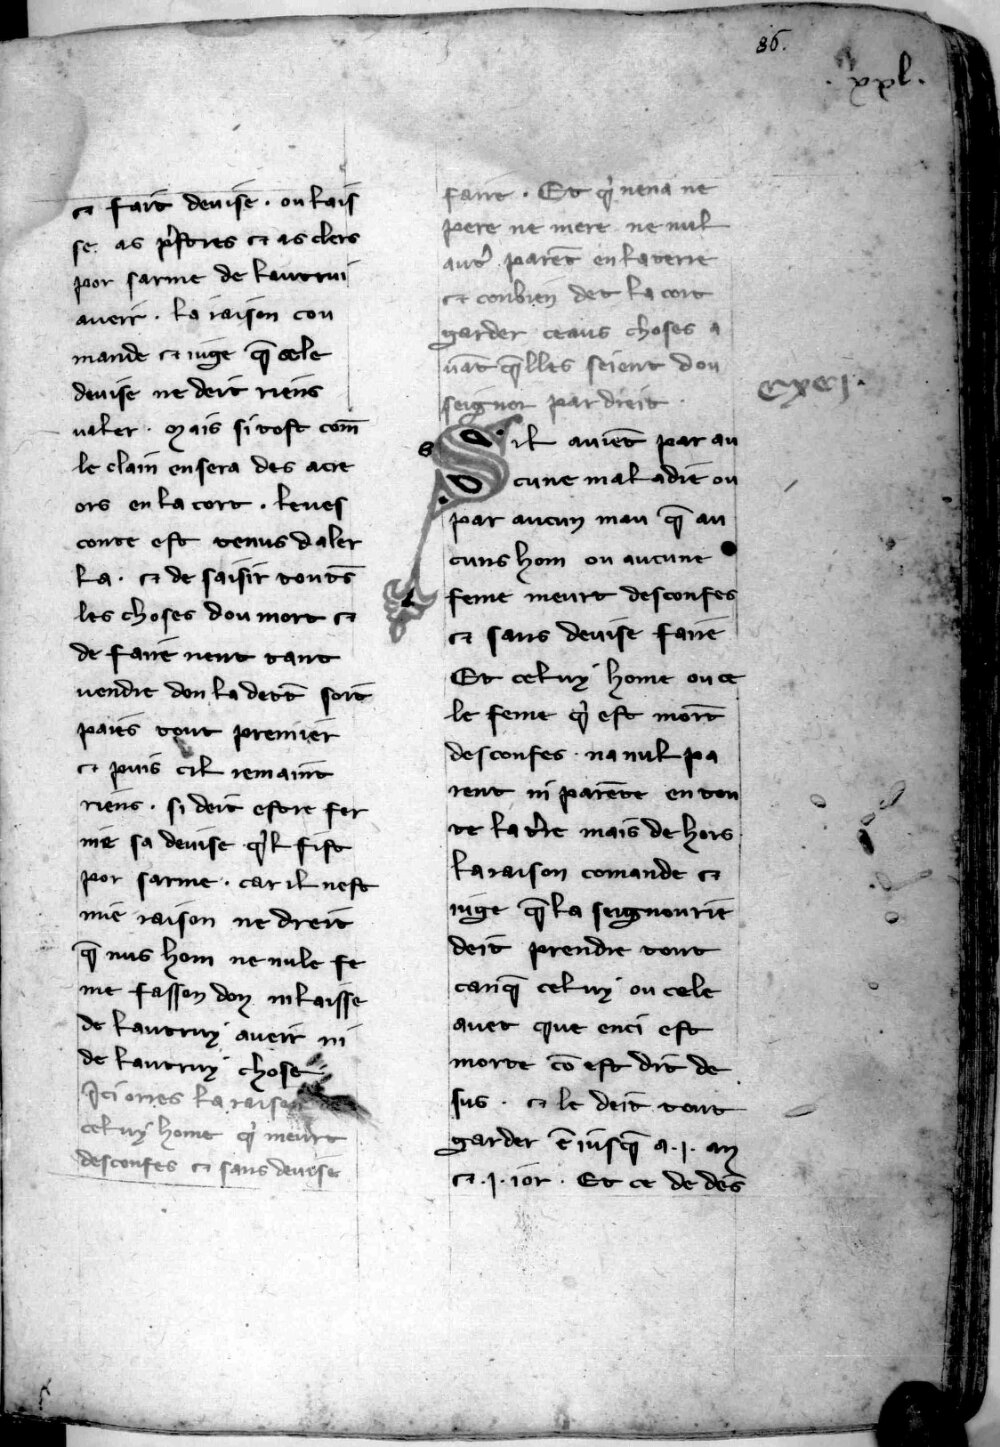 86.
.xxl.
et fait deuise . ou lais
se as pͥstres et as clers
por sarme de lautrui
aueir . la raison cou
mande et iuge q̄ cele
deuise ne deit riens
ualer . Mais si tost com̄
le claim en sera des acre
ors en la cort . le ues
conte est tenus daler
la . et de saisir toutes̄
les choses dou mort et
de faire uent tant
uendre don la dette sort
paiés tout premier
et puis cil remaint
riens . si deit estre fer
mée sa deuise qͥl fist
por sarme . car il nest
mie raison ne dreit
q̄ nus hom ne nule fe
me fassen don ni laisse
de lautruy aueir ni
de lautruy chose
Ici orres la raison
celuy home qͥ meurt
desconfes et sans deuise
faire . Et qͥ nena ne
pere ne mere ne nul
autͥ parēt en la terre
et conbien det la cort
garder ceaus choses a
uāt q̄lles seient dou
seignor par dreit .
cxcj.
Sil auiēt par au
cune maladie ou
par aucun mau q̄ au
cuns hom ou aucune
feme meurt desconfes
et sans deuise faire
Et celuy home ou ce
le feme qͥ est mort
desconfes . na nul pa
rent ni parēte en tou
te la tͥre mais de hors
la raison comande et
iuge q̄ la seignourie
deit prendre tout
canq̄ celuy ou cele
auet que enci est
morte cō est dit de
sus . et le deit tout
garder ē iusq̄ a .j. an
et .j. ior . Et ce de dēs